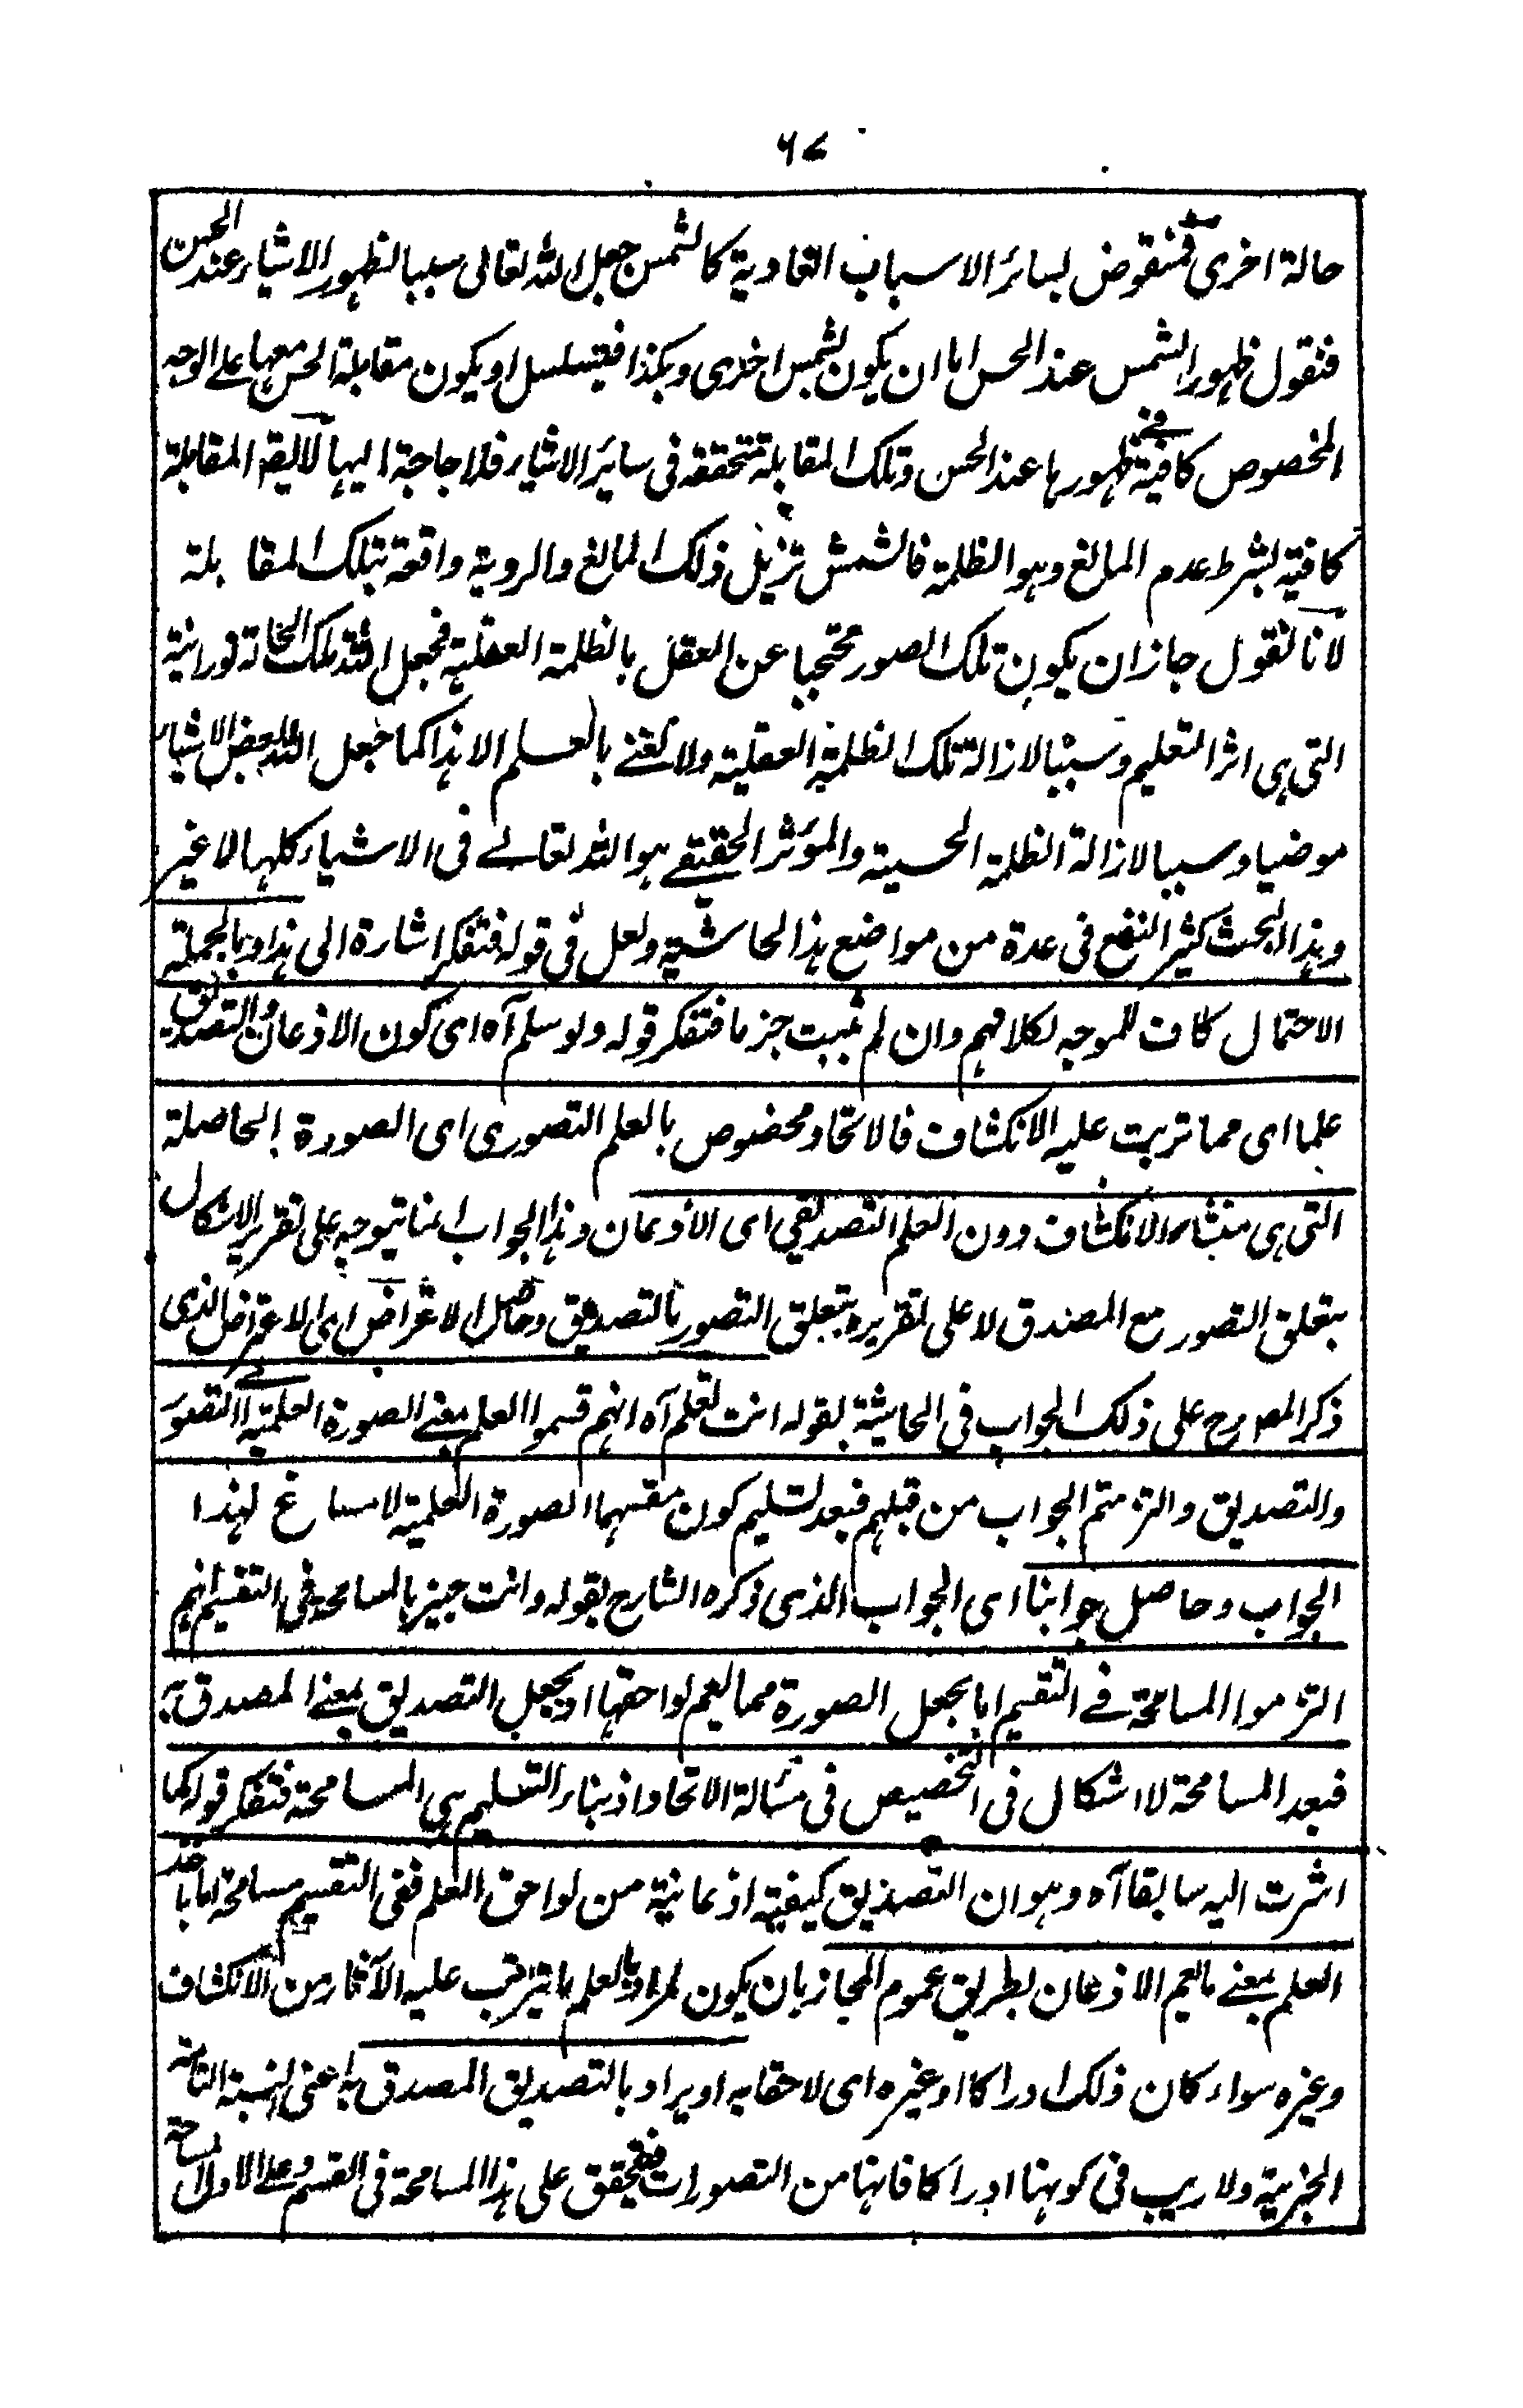 ٦٧
حالة اخرى فمنقوض بسائر الاسباب العادية كالشمس جعل الله تعالى سببا لظهور الاشياء عند الحس
فنقول ظهور الشمس عند الحس اما ان يكون بشمس اخرى وهكذا فيتسلسل او يكون مقابلة الحس معها على الوجه
المخصوص كافية في ظهورها عند الحس وتلك المقابلة متحققة في سائر الاشياء فلا حاجة اليها لا يقال المقابلة
كافية بشرط عدم المانع وهو الظلمة فالشمس تزيل ذلك المانع والروية واقعة بتلك المقابلة
لانا نقول جاز ان يكون تلك الصور محتجبا عن العقل بالظلمة العقلية فجعل الله تلك الحالة نورانية
التي هي اثر التعليم وسببا لازالة تلك الظلمة العقلية ولا نعني بالعلم الا هذا كما جعل الله بعض الاشياء
موضيا وسببا لازالة الظلمة الحسية والمؤثر الحقيقي هو الله تعالے في الاشياء كلها لا غير
وهذا البحث كثير النفع في عدة من مواضع هذا الحاشية ولعل في قوله فتفكر اشارة الى هذا وبالجملة
الاحتمال كاف للموجه لكلامهم وان لم يثبت جزما فتفكر قوله ولو سلم آه اى كون الاذعان والتصديق
علما اى مما ترتب عليه الانكشاف فالاتحاد مخصوص بالعلم التصورى اى الصورة الحاصلة
التي هي منشاء الانكشاف دون العلم التصديقي اى الاذعان وهذا الجواب انما يتوجه على تقرير الاشكال
بتعلق التصور مع المصدق لا على تقريره بتعلق التصور بالتصديق وحاصل الاعتراض اى الاعتراض الذى
ذكر المصرح على ذلك الجواب في الحاشية بقوله انت تعلم آه انهم قسموا العلم بمعنے الصورة العلمية الى التصور
والتصديق والتزمتم الجواب من قبلهم فبعد تسليم كون مقسمهما الصورة العلمية لا مساغ لهذا
الجواب وحاصل جوابنا اى الجواب الذى ذكره الشارح بقوله وانت خبير بالمسامحة في التقسيم انهم
التزموا المسامحة في التقسيم اما بجعل الصورة مما يعم لواحقها او بجعل التصديق بمعنے المصدق به
فبعد المسامحة لا اشكال في التخصيص في مسالة الاتحاد اذ بناء التسليم هي المسامحة فتفكر قوله كما
اشرت اليه سابقا آه وهو ان التصديق كيفية اذعانية من لواحق العلم ففي التقسيم مسامحة اما باخذ
العلم بمعنے ما يعم الاذعان بطريق عموم المجاز بان يكون المراد بالعلم ما يترتب عليه الآثار من الانكشاف
وغيره سواء كان ذلك ادراكا او غيره اى لاحقا به او يراد بالتصديق المصدق به اعنى النسبة التامة
الخبرية ولا ريب في كونها ادراكا فانها من التصورات فتحقق على هذا المسامحة في القسم وعلى الاول مسامحة